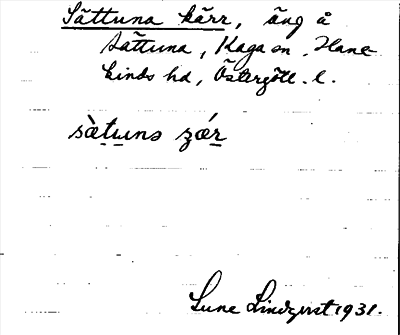 Sättuna kärr, äng å
Sättuna, Kaga sn, Hane
kinds hd, Östergötl. l.
sὰtunə
Sune Lindqvist 1931.